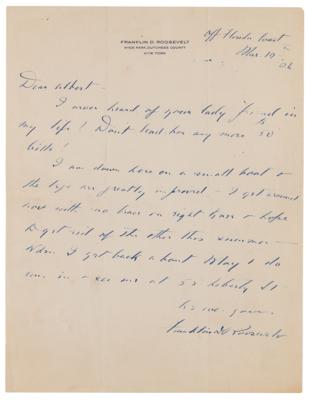 FRANKLIN D. ROOSEVELT
HYDE PARK, DUTCHESS COUNTY
NEW YORK
Off Florida Coast
Mar. 10
Dear Albert –
I never heard of your lady friend in
my life! Don't lend her any more $0
bills!
I am down here on a small boat &
the legs are greatly improved – I get around
now with no brace on right knee & hope
to get rid of the other this summer –
When I get back about May 1 do
come in & see me at 52 Liberty St
As ever yours
Franklin D Roosevelt